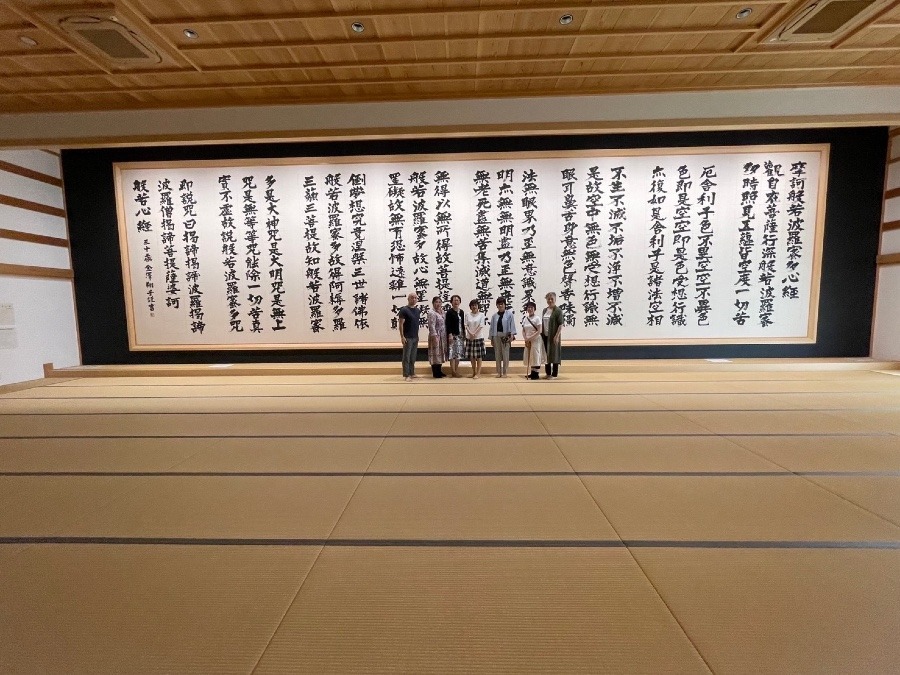 摩訶般若波羅蜜多心経
觀自在菩薩行深般若波羅蜜
多時照見五蘊皆空度一切苦
厄舎利子色不異空空不異色
色即是空空即是色受想行識
亦復如是舎利子是諸法空相
不生不滅不垢不浄不増不減
是故空中無色無受想行識無
眼耳鼻舌身意無色聲香味觸
法無眼界乃至無意識界無
明亦無無明盡乃至無老
無老死盡無苦集滅道無智
無得以無所得故菩提薩埵
般若波羅蜜多故心無罣礙無
罣礙故無有恐怖遠離一切顛
倒夢想究竟涅槃三世諸佛依
般若波羅蜜多故得阿耨多羅
三藐三菩提故知般若波羅蜜
多是大神咒是大明咒是無上
咒是無等等咒能除一切苦真
實不虚故説般若波羅蜜多咒
即説咒曰揭諦揭諦波羅揭諦
波羅僧揭諦菩提薩婆訶
般若心経 三十歳 金澤翔子謹書